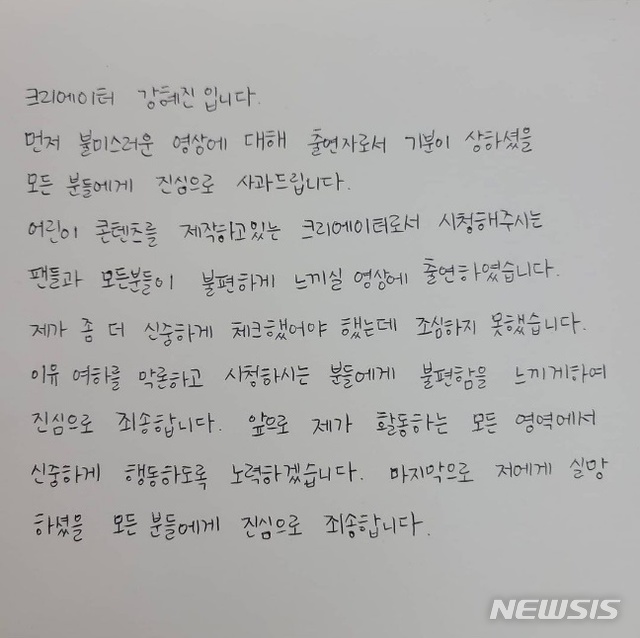 크리에이터 강혜진입니다.
먼저 불미스러운 영상에 대해 출연자로서 기분이 상하셨을
모든 분들에게 진심으로 사과드립니다.
어린이 콘텐츠를 제작하고있는 크리에이터로서 시청해주시는
팬들과 모든분들이 불편하게 느끼실 영상에 출연하였습니다.
제가 좀 더 신중하게 체크했어야 했는데 조심하지 못했습니다.
이유 여하를 막론하고 시청하시는 분들에게 불편함을 느끼게하여
진심으로 죄송합니다. 앞으로 제가 활동하는 모든 영역에서
신중하게 행동하도록 노력하겠습니다. 마지막으로 저에게 실망
하셨을 모든 분들에게 진심으로 죄송합니다.
NEWSIS